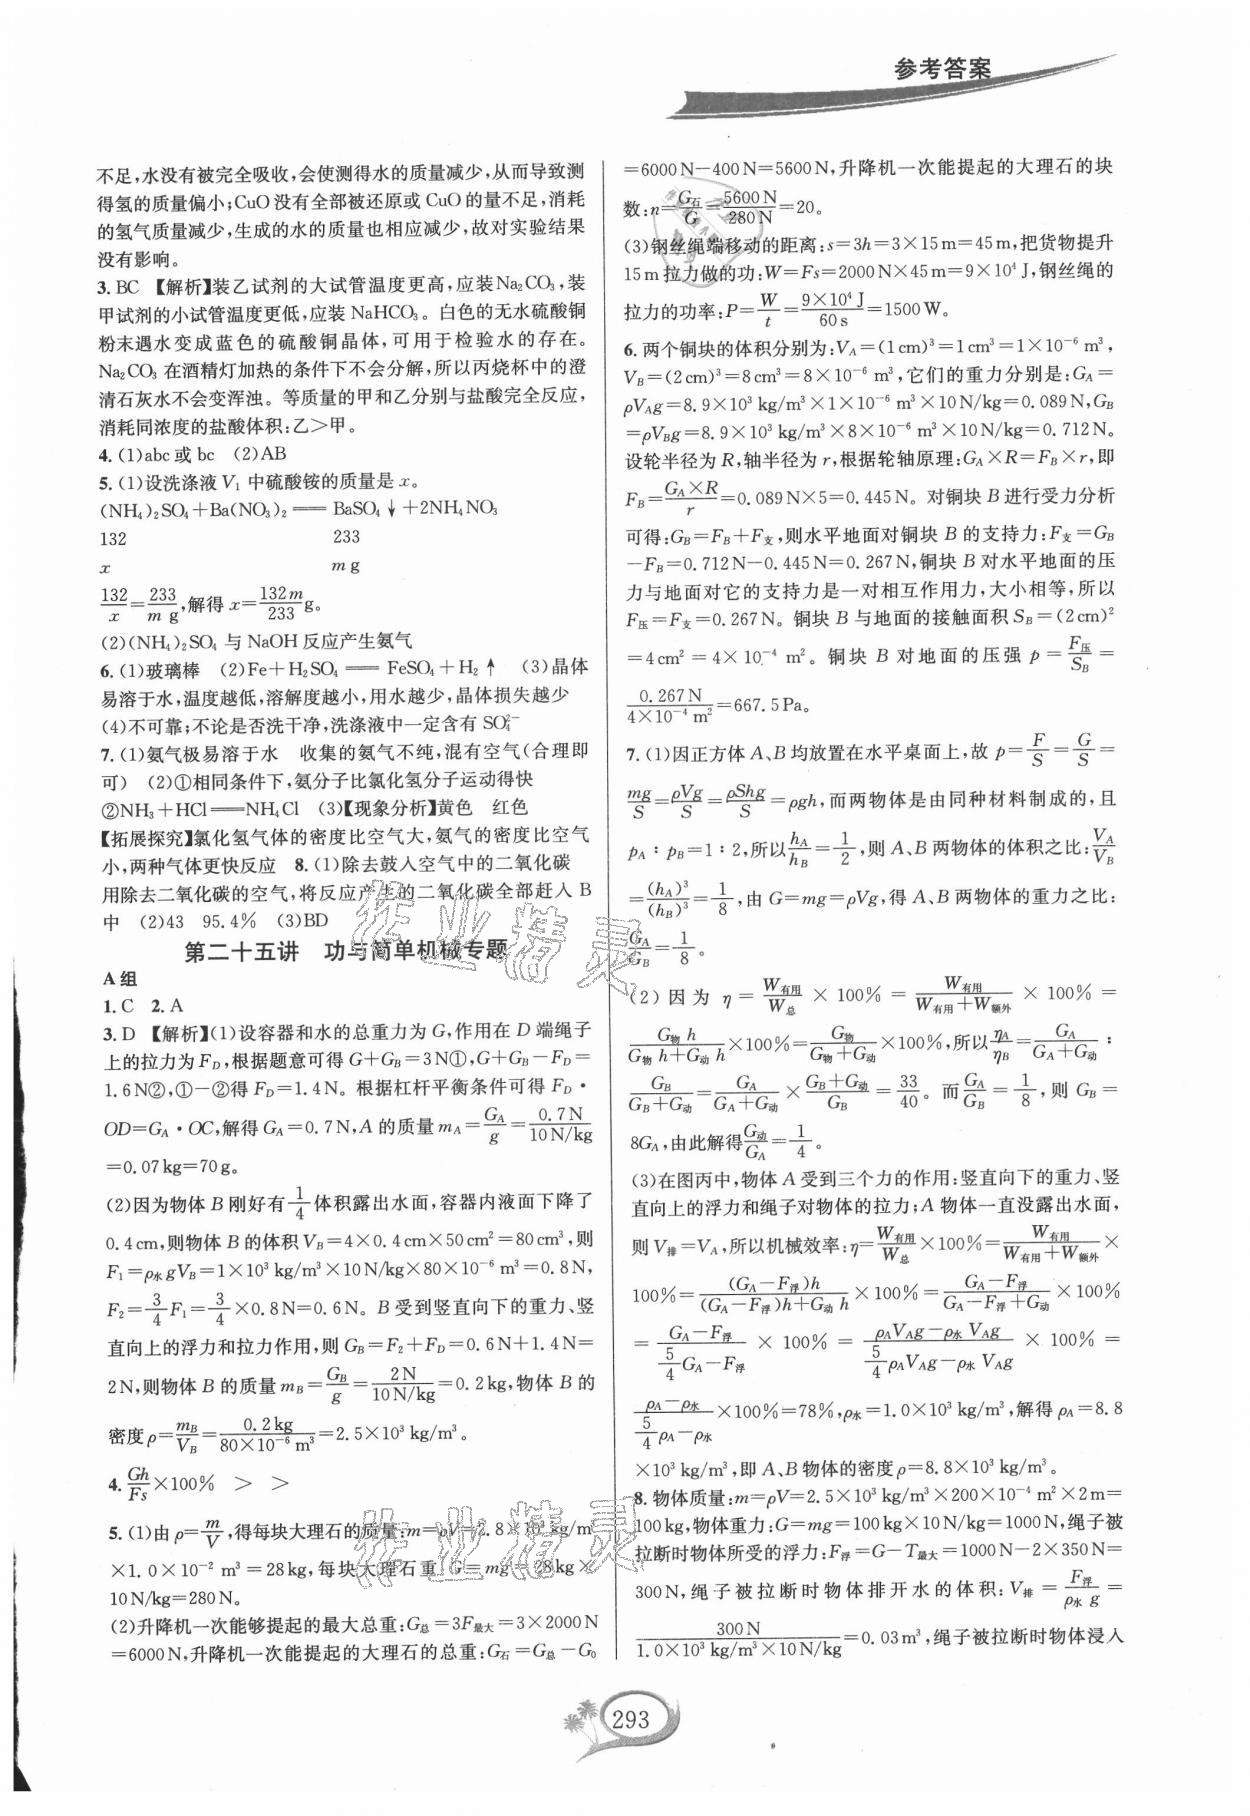 参考答案
不足,水没有被完全吸收,会使测得水的质量减少,从而导致测
得氢的质量偏小;CuO 没有全部被还原或 CuO 的量不足,消耗
的氢气质量减少,生成的水的质量也相应减少,故对实验结果
没有影响。
3. BC 【解析】装乙试剂的大试管温度更高,应装Na₂CO₃,装
甲试剂的小试管温度更低,应装 NaHCO₃。白色的无水硫酸铜
粉末遇水变成蓝色的硫酸铜晶体,可用于检验水的存在。
Na₂CO₃ 在酒精灯加热的条件下不会分解,所以丙烧杯中的澄
清石灰水不会变浑浊。等质量的甲和乙分别与盐酸完全反应,
消耗同浓度的盐酸体积:乙>甲。
4. (1)abc或 bc (2)AB
5. (1)设洗涤液 V₁ 中硫酸铵的质量是 x。
(NH₄)₂SO₄+Ba(NO₃)₂══BaSO₄↓+2NH₄NO₃
132 233
x m g
132/x=233/m g,解得 x=132m/233 g。
(2)(NH₄)₂SO₄ 与 NaOH 反应产生氨气
6. (1)玻璃棒 (2)Fe+H₂SO₄══FeSO₄+H₂↑ (3)晶体
易溶于水,温度越低,溶解度越小,用水越少,晶体损失越少
(4)不可靠;不论是否洗干净,洗涤液中一定含有 SO₄²⁻
7. (1)氨气极易溶于水 收集的氨气不纯,混有空气(合理即
可) (2)①相同条件下,氨分子比氯化氢分子运动得快
②NH₃+HCl══NH₄Cl (3)【现象分析】黄色 红色
【拓展探究】氯化氢气体的密度比空气大,氨气的密度比空气
小,两种气体更快反应 8. (1)除去鼓入空气中的二氧化碳
用除去二氧化碳的空气,将反应产生的二氧化碳全部赶入 B
中 (2)43 95.4% (3)BD
第二十五讲 功与简单机械专题
A 组
1. C 2. A
3. D 【解析】(1)设容器和水的总重力为 G,作用在 D 端绳子
上的拉力为 F_D,根据题意可得 G+G_B=3N①,G+G_B-F_D=
1.6N②,①-②得 F_D=1.4N。根据杠杆平衡条件可得 F_D·
OD=G_A·OC,解得 G_A=0.7N,A 的质量 m_A=G_A/g=0.7N/10N/kg
=0.07kg=70g。
(2)因为物体 B 刚好有1/4体积露出水面,容器内液面下降了
0.4cm,则物体 B 的体积 V_B=4×0.4cm×50cm²=80cm³,则
F₁=ρ水gV_B=1×10³kg/m³×10N/kg×80×10⁻⁶m³=0.8N,
F₂=3/4F₁=3/4×0.8N=0.6N。B 受到竖直向下的重力、竖
直向上的浮力和拉力作用,则 G_B=F₂+F_D=0.6N+1.4N=
2N,则物体 B 的质量 m_B=G_B/g=2N/10N/kg=0.2kg,物体 B 的
密度 ρ=m_B/V_B=0.2kg/80×10⁻⁶m³=2.5×10³kg/m³。
4. Gh/Fs×100% > >
5. (1)由 ρ=m/V,得每块大理石的质量:m=ρV=2.8×10³kg/m³
×1.0×10⁻² m³=28kg,每块大理石重:G=mg=28kg×
10N/kg=280N。
(2)升降机一次能够提起的最大总重:G总=3F最大=3×2000N
=6000N,升降机一次能提起的大理石的总重:G石=G总-G₀
=6000N-400N=5600N,升降机一次能提起的大理石的块
数:n=G石/G=5600N/280N=20。
(3)钢丝绳端移动的距离:s=3h=3×15m=45m,把货物提升
15m拉力做的功:W=Fs=2000N×45m=9×10⁴J,钢丝绳的
拉力的功率:P=W/t=9×10⁴J/60s=1500W。
6. 两个铜块的体积分别为:V_A=(1cm)³=1cm³=1×10⁻⁶m³,
V_B=(2cm)³=8cm³=8×10⁻⁶ m³,它们的重力分别是:G_A=
ρV_Ag=8.9×10³kg/m³×1×10⁻⁶m³×10N/kg=0.089N,G_B
=ρV_Bg=8.9×10³kg/m³×8×10⁻⁶m³×10N/kg=0.712N。
设轮半径为 R,轴半径为 r,根据轮轴原理:G_A×R=F_B×r,即
F_B=G_A×R/r=0.089N×5=0.445N。对铜块 B 进行受力分析
可得:G_B=F_B+F支,则水平地面对铜块 B 的支持力:F支=G_B
-F_B=0.712N-0.445N=0.267N,铜块 B 对水平地面的压
力与地面对它的支持力是一对相互作用力,大小相等,所以
F压=F支=0.267N。铜块 B 与地面的接触面积 S_B=(2cm)²
=4cm²=4×10⁻⁴ m²。铜块 B 对地面的压强 p=F压/S_B=
0.267N/4×10⁻⁴m²=667.5Pa。
7. (1)因正方体 A、B 均放置在水平桌面上,故 p=F/S=G/S=
mg/S=ρVg/S=ρShg/S=ρgh,而两物体是由同种材料制成的,且
p_A:p_B=1:2,所以h_A/h_B=1/2,则 A、B 两物体的体积之比:V_A/V_B
=(h_A)³/(h_B)³=1/8,由 G=mg=ρVg,得 A、B 两物体的重力之比:
G_A/G_B=1/8。
(2)因为 η=W有用/W总×100%=W有用/W有用+W额外×100%=
G物h/G物h+G动h×100%=G物/G物+G动×100%,所以η_A/η_B=G_A/G_A+G动:
G_B/G_B+G动=G_A/G_A+G动×G_B+G动/G_B=33/40。而G_A/G_B=1/8,则 G_B=
8G_A,由此解得G动/G_A=1/4。
(3)在图丙中,物体 A 受到三个力的作用:竖直向下的重力、竖
直向上的浮力和绳子对物体的拉力;A 物体一直没露出水面,
则 V排=V_A,所以机械效率:η=W有用/W总×100%=W有用/W有用+W额外×
100%=(G_A-F浮)h/(G_A-F浮)h+G动h×100%=G_A-F浮/G_A-F浮+G动×100%
=G_A-F浮/5/4G_A-F浮×100%=ρ_AV_Ag-ρ水V_Ag/5/4ρ_AV_Ag-ρ水V_Ag×100%=
ρ_A-ρ水/5/4ρ_A-ρ水×100%=78%,ρ水=1.0×10³kg/m³,解得 ρ_A=8.8
×10³kg/m³,即 A、B 物体的密度 ρ=8.8×10³kg/m³。
8. 物体质量:m=ρV=2.5×10³kg/m³×200×10⁻⁴m²×2m=
100kg,物体重力:G=mg=100kg×10N/kg=1000N,绳子被
拉断时物体所受的浮力:F浮=G-T最大=1000N-2×350N=
300N,绳子被拉断时物体排开水的体积:V排=F浮/ρ水g=
300N/1.0×10³kg/m³×10N/kg=0.03m³,绳子被拉断时物体浸入
293
作业精灵
作业精灵